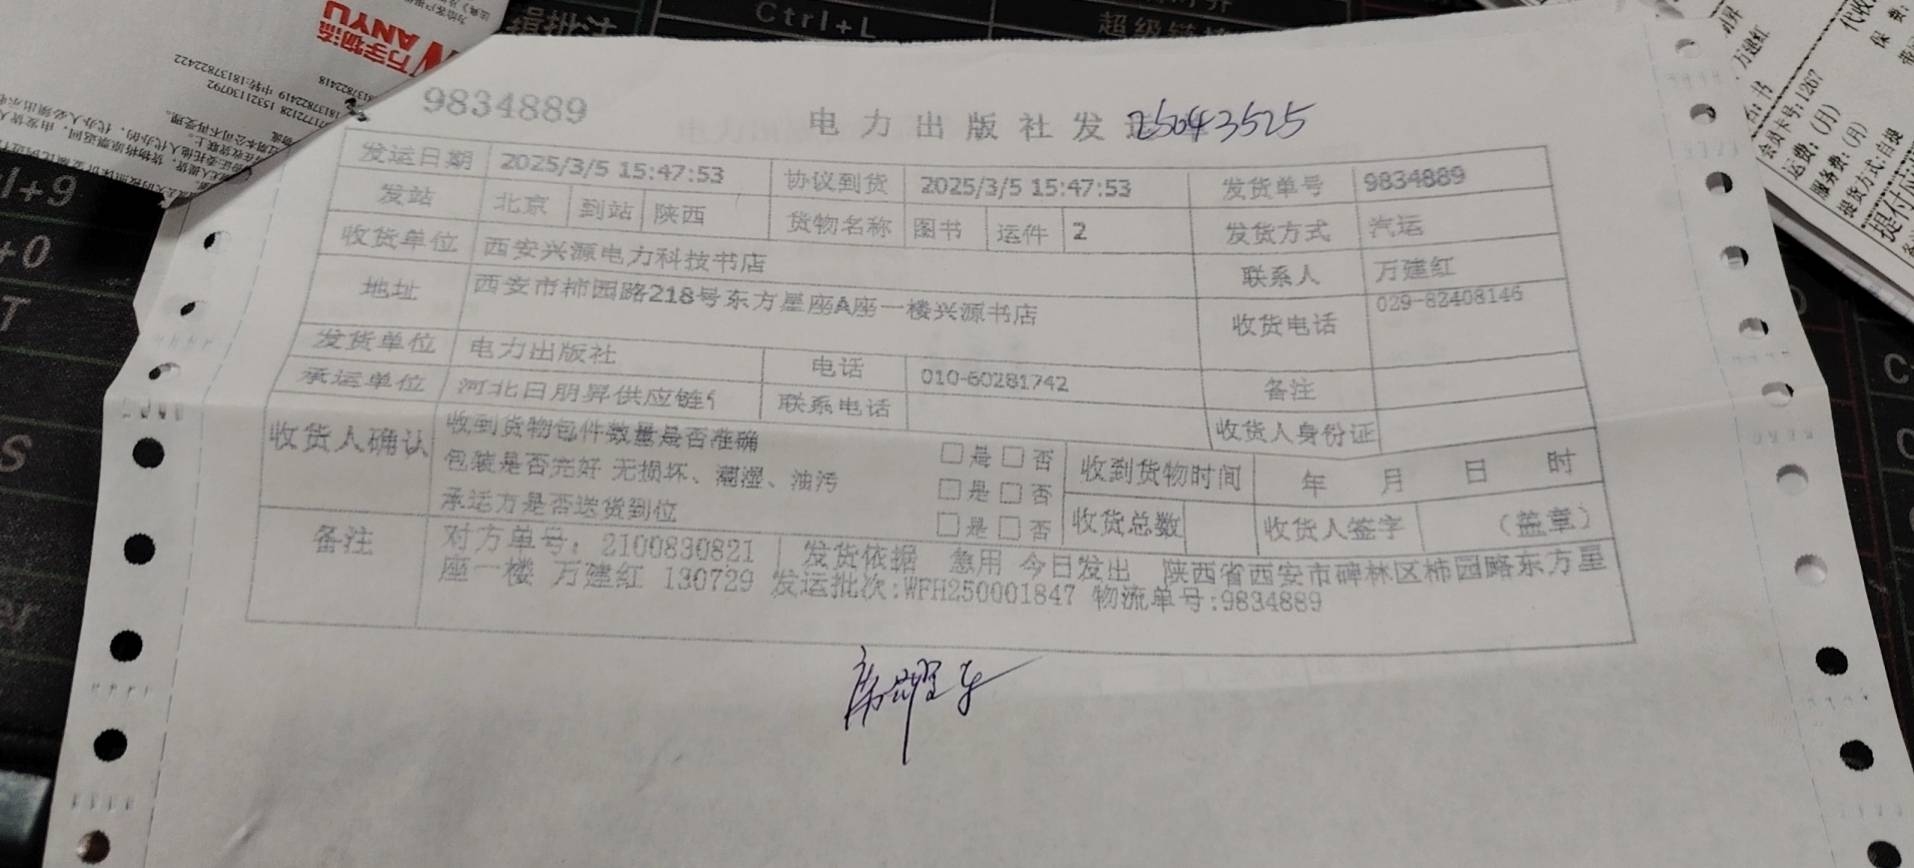 9834889
电力出版社发 25043525
发运日期 2025/3/5 15:47:53 协议到货 2025/3/5 15:47:53 发货单号 9834889
发站 北京 到站 陕西 货物名称 图书 运件 2 发货方式 汽运
收货单位 西安兴源电力科技书店 联系人 万建红
地址 西安市柿园路218号东方星座A座一楼兴源书店 收货电话 029-82408146
发货单位 电力出版社 电话 010-60281742 备注
承运单位 河北日朋昇供应链 联系电话 收货人身份证
收货人确认 收到货物包件数量是否准确 □是□否
包装是否完好 无损坏、潮湿、油污 □是□否 收到货物时间 年 月 日 时
承运方是否送货到位 □是□否 收货总数 收货人签字 (盖章)
备注 对方单号: 2100830821 | 发货依据 急用 今日发出 陕西省西安市碑林区柿园路东方星
座一楼 万建红 130729 发运批次:WFH250001847 物流单号:9834889
万宇物流
WANYU
18137822418
18137822419 中转:18137822422
15321130792
Ctrl+L
会员卡号:1267
运费: (月)
服务费: (月)
提货方式:自提
万建红
代收
保 费: